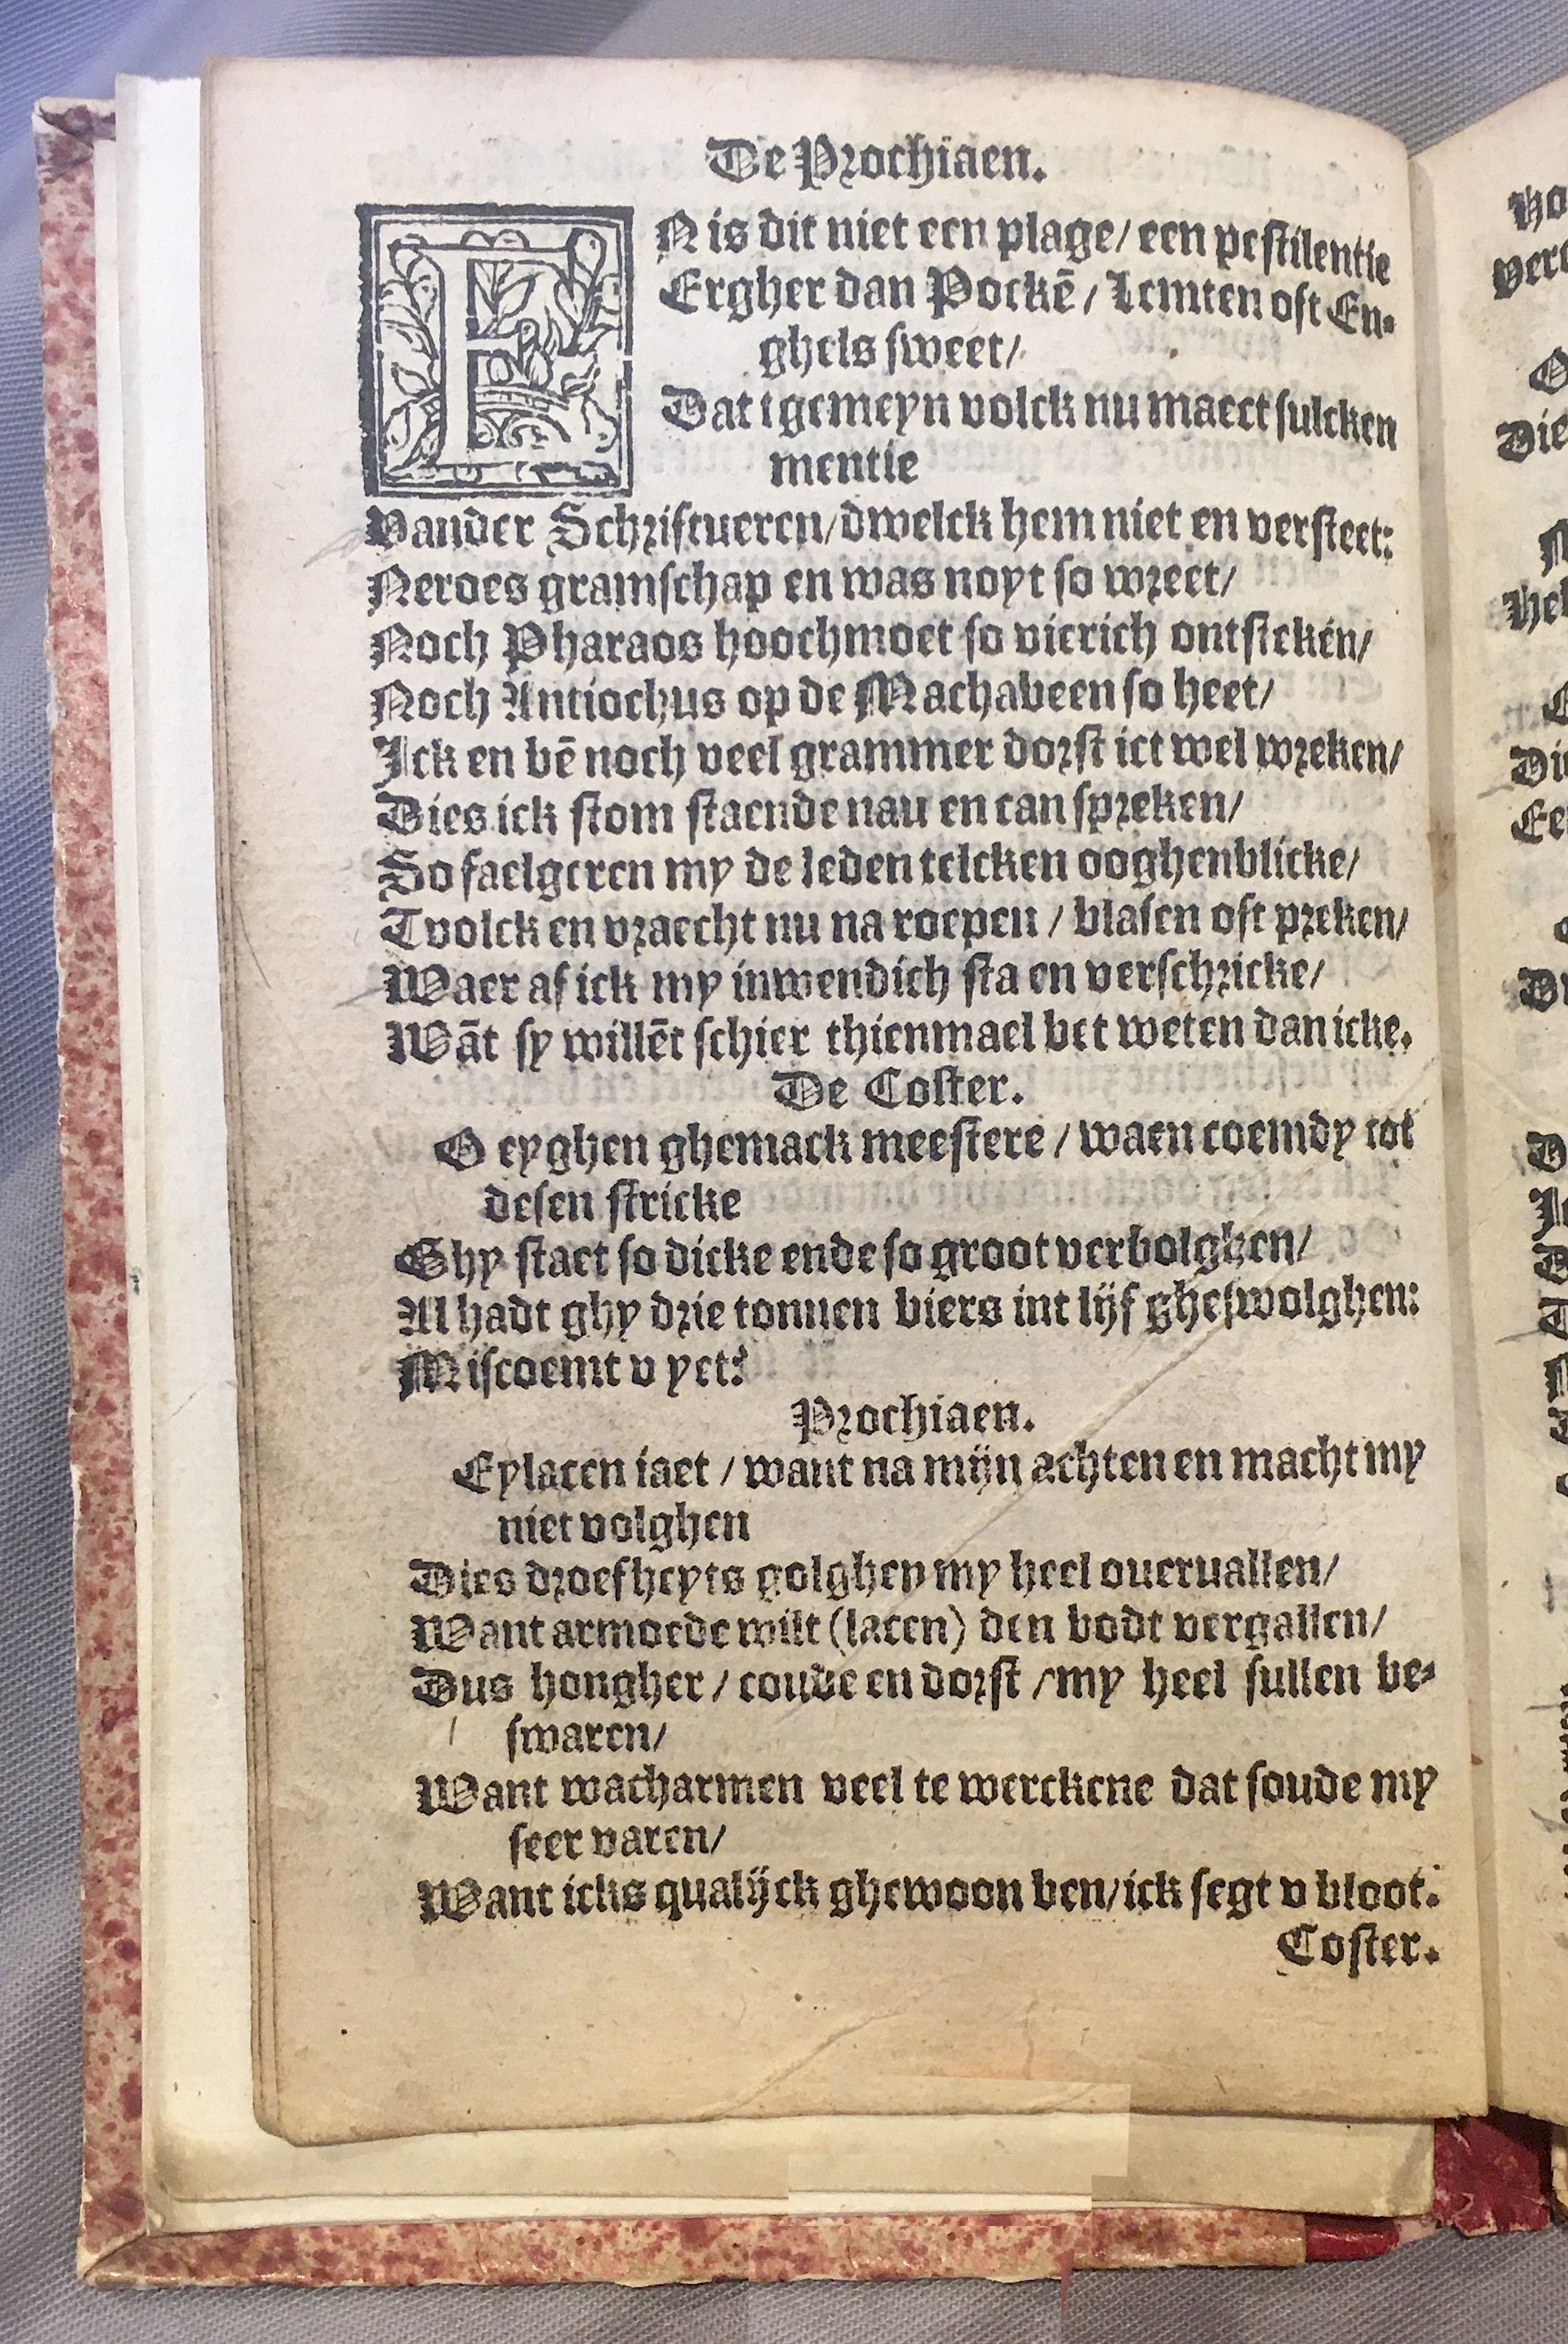 De Prochiaen.
EN is dit niet een plage/ een pestilentie
Ergher dan Pockē / Lemten oft En-
ghels sweet/
Dat tgemeyn volck nu maect sulcken
mentie
Vander Schriftueren/dwelck hem niet en versteet:
Neroes gramschap en was noyt so wreet/
Noch Pharaos hoochmoet so vierich ontsteken/
Noch Antiochus op de Machabeen so heet/
Ick en bē noch veel grammer dorst ict wel wreken/
Dies ick stom staende nau en can spreken/
So faelgeren my de leden telcken ooghenblicke/
Tvolck en vraecht nu na roepen / blasen oft preken/
Waer af ick my inwendich sta en verschricke/
Wāt sy willēt schier thienmael bet weten dan icke.
De Coster.
O eyghen ghemack meestere / waen coemdy tot
desen stricke
Ghy staet so dicke ende so groot verbolghen/
Al hadt ghy drie tonnen biers int lijf gheswolghen:
Miscoemt v yet?
Prochiaen.
Eylacen iaet / want na mijn achten en macht my
niet volghen
Dies droefheyts golghen my heel oueruallen/
Want armoede wilt (lacen) den bodt vergallen/
Dus hongher / coude en dorst / my heel sullen be-
swaren/
Want wacharmen veel te werckene dat soude my
seer varen/
Want icks qualijck ghewoon ben/ick segt v bloot.
Coster.